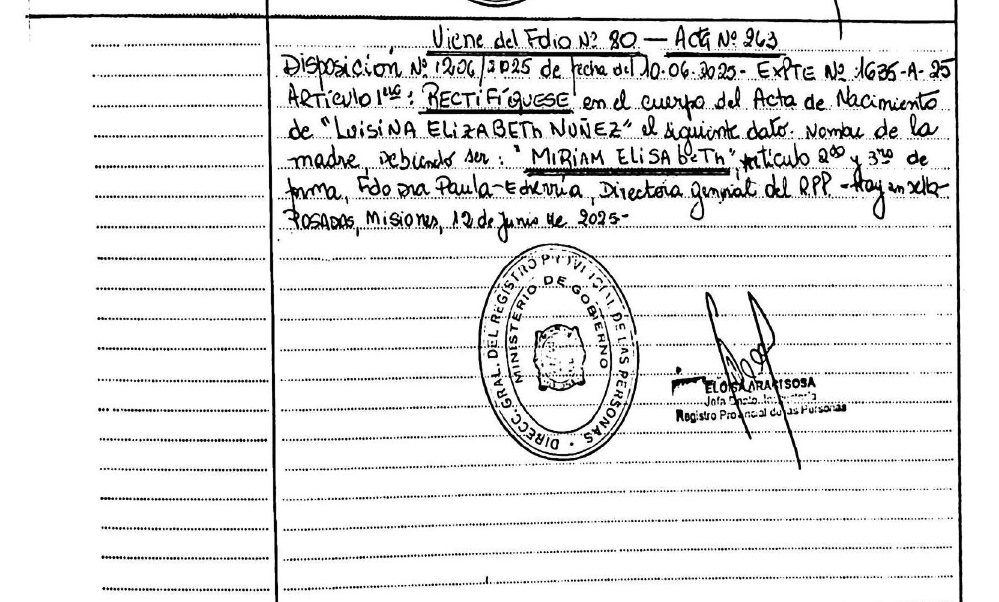 Viene del Folio Nº 80 — Acta Nº 263
Disposición Nº 1206/2025 de fecha del 10-06-2025- EXPTE Nº 1635-A-25
ARTículo 1ero: RECTIFÍQUESE en el cuerpo del Acta de Nacimiento
de "LUISINA ELIZABETh NUÑEZ" el siguiente dato. Nombre de la
madre, Debiendo ser: "MIRIAM ELISAbeTh", Artículo 2do y 3ro de
forma, Fdo Dra Paula Echeverría, Directora General del RPP. - Hay un sello
POSADAS, Misiones, 12 de Junio de 2025-
DIRECC. GRAL. DEL REGISTRO PROVINCIAL DE LAS PERSONAS
MINISTERIO DE GOBIERNO
ELOISA ARACI SOSA
Jefa Dpto.
Registro Provincial de las Personas